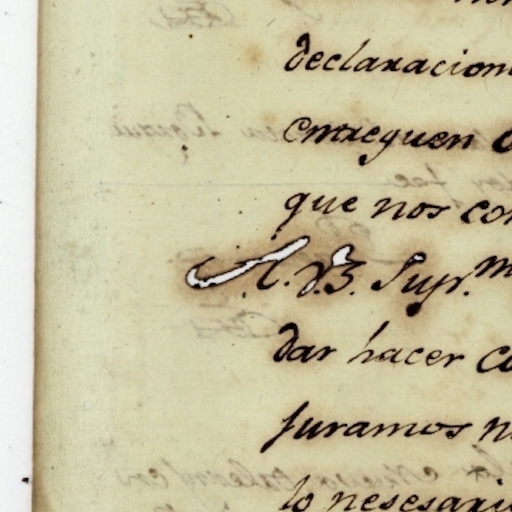 declaracion
entreguen
que nos con
A. V.S. Sup.m
dar hacer co
juramos n
lo nesesari